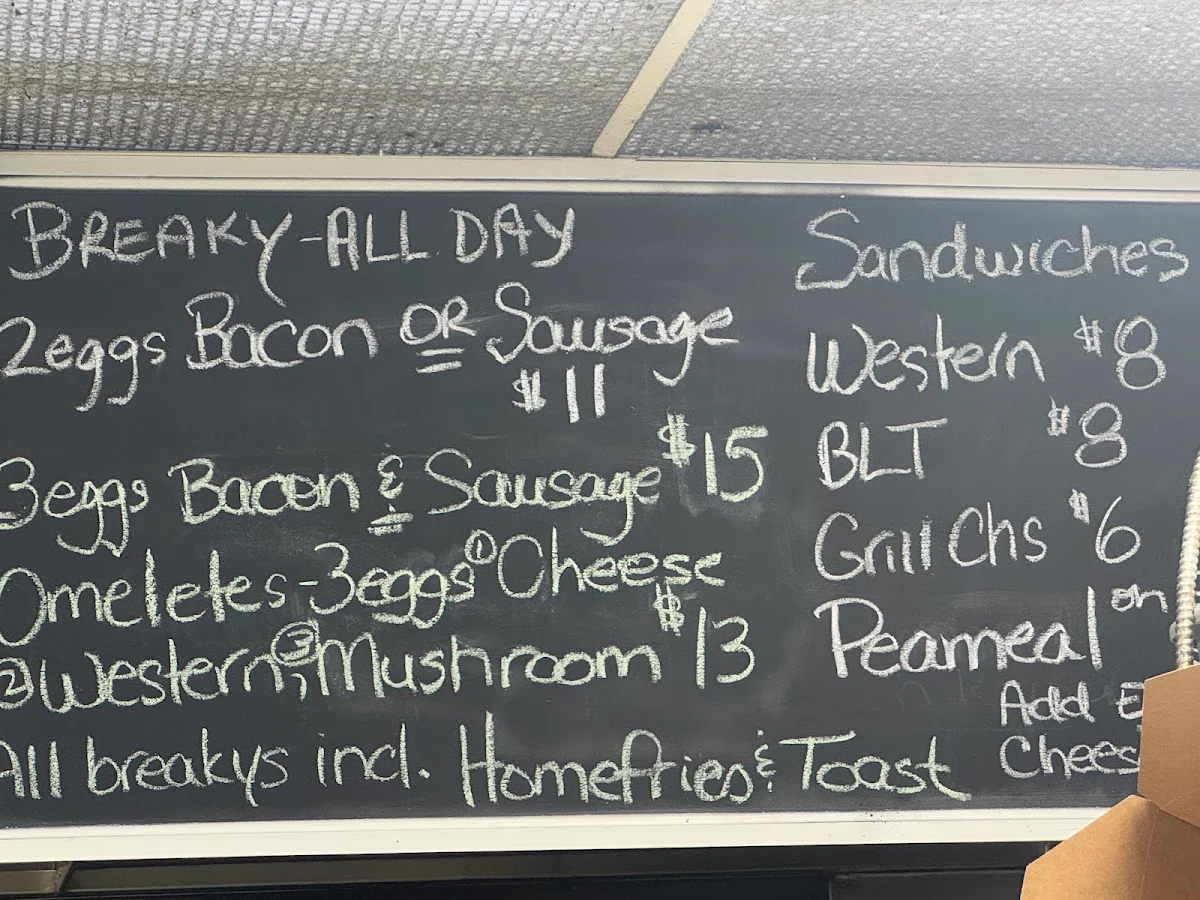 BREAKY-ALL DAY
2eggs Bacon OR Sausage
$11
3eggs Bacon & Sausage $15
Omeletes-3eggs ① Cheese
② Western, ③ Mushroom $13
All breakys incl. Homefries & Toast
Sandwiches
Western $8
BLT $8
Grill Chs $6
Peameal on
Add